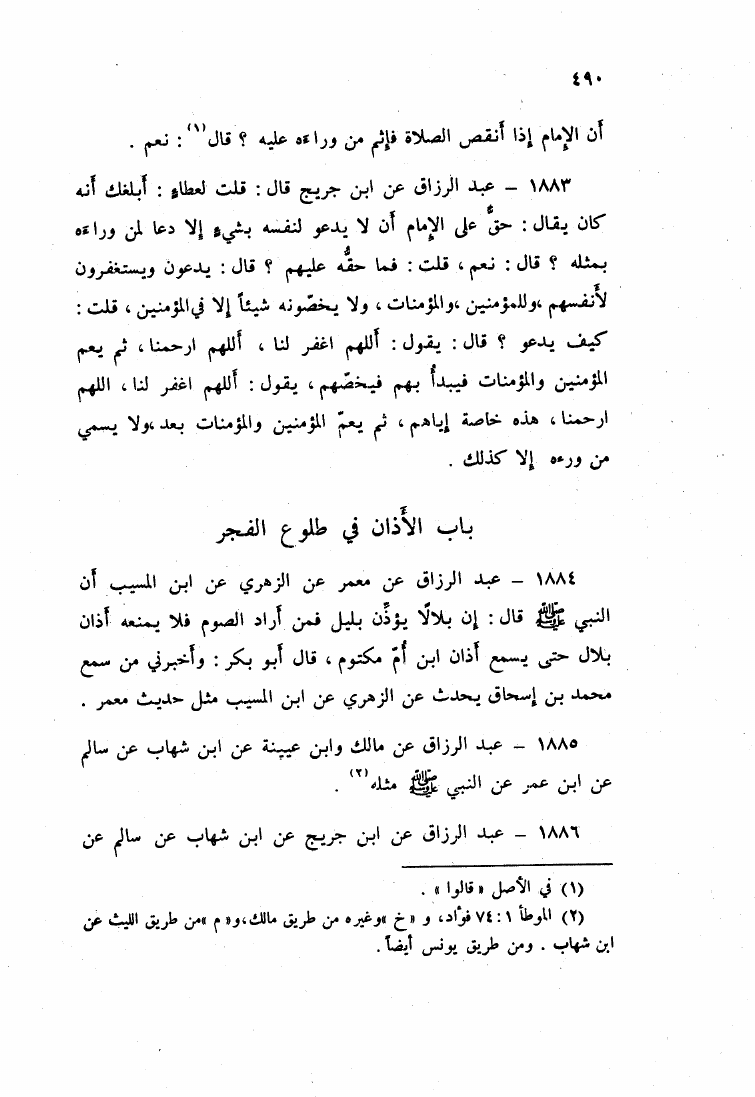 ٤٩٠
أن الإمام إذا أنقص الصلاة فإثم من وراءه عليه ؟ قال(١) : نعم .
١٨٨٣ – عبد الرزاق عن ابن جريج قال : قلت لعطاءٍ : أبلغك أنه
كان يقال : حقٌّ على الإمام أن لا يدعو لنفسه بشيءٍ إلا دعا لمن وراءه
بمثله ؟ قال : نعم ، قلت : فما حقُّه عليهم ؟ قال : يدعون ويستغفرون
لأنفسهم ،وللمؤمنين ،والمؤمنات ، ولا يخصّونه شيئاً إلا في المؤمنين ، قلت :
كيف يدعو ؟ قال : يقول : أللهم اغفر لنا ، أللهم ارحمنا ، ثم يعم
المؤمنين والمؤمنات فيبدأُ بهم فيخصّهم ، يقول : أللهم اغفر لنا ، اللهم
ارحمنا ، هذه خاصة إياهم ، ثم يعمّ المؤمنين والمؤمنات بعد ،ولا يسمي
من ورءه إلا كذلك .
باب الأَذان في طلوع الفجر
١٨٨٤ – عبد الرزاق عن معمر عن الزهري عن ابن المسيب أن
النبي ﷺ قال : إن بلالًا يؤذِّن بليل فمن أراد الصوم فلا يمنعه أذان
بلال حتى يسمع أذان ابن أُمّ مكتوم ، قال أبو بكر : وأخبرني من سمع
محمد بن إسحاق يحدث عن الزهري عن ابن المسيب مثل حديث معمر .
١٨٨٥ – عبد الرزاق عن مالك وابن عيينة عن ابن شهاب عن سالم
عن ابن عمر عن النبي ﷺ مثله(٢) .
١٨٨٦ – عبد الرزاق عن ابن جريج عن ابن شهاب عن سالم عن
(١) في الأصل « قالوا » .
(٢) الموطأ ١ : ٧٤ فؤاد، و « خ »وغيره من طريق مالك،و« م »من طريق الليث عن
ابن شهاب . ومن طريق يونس أيضاً .